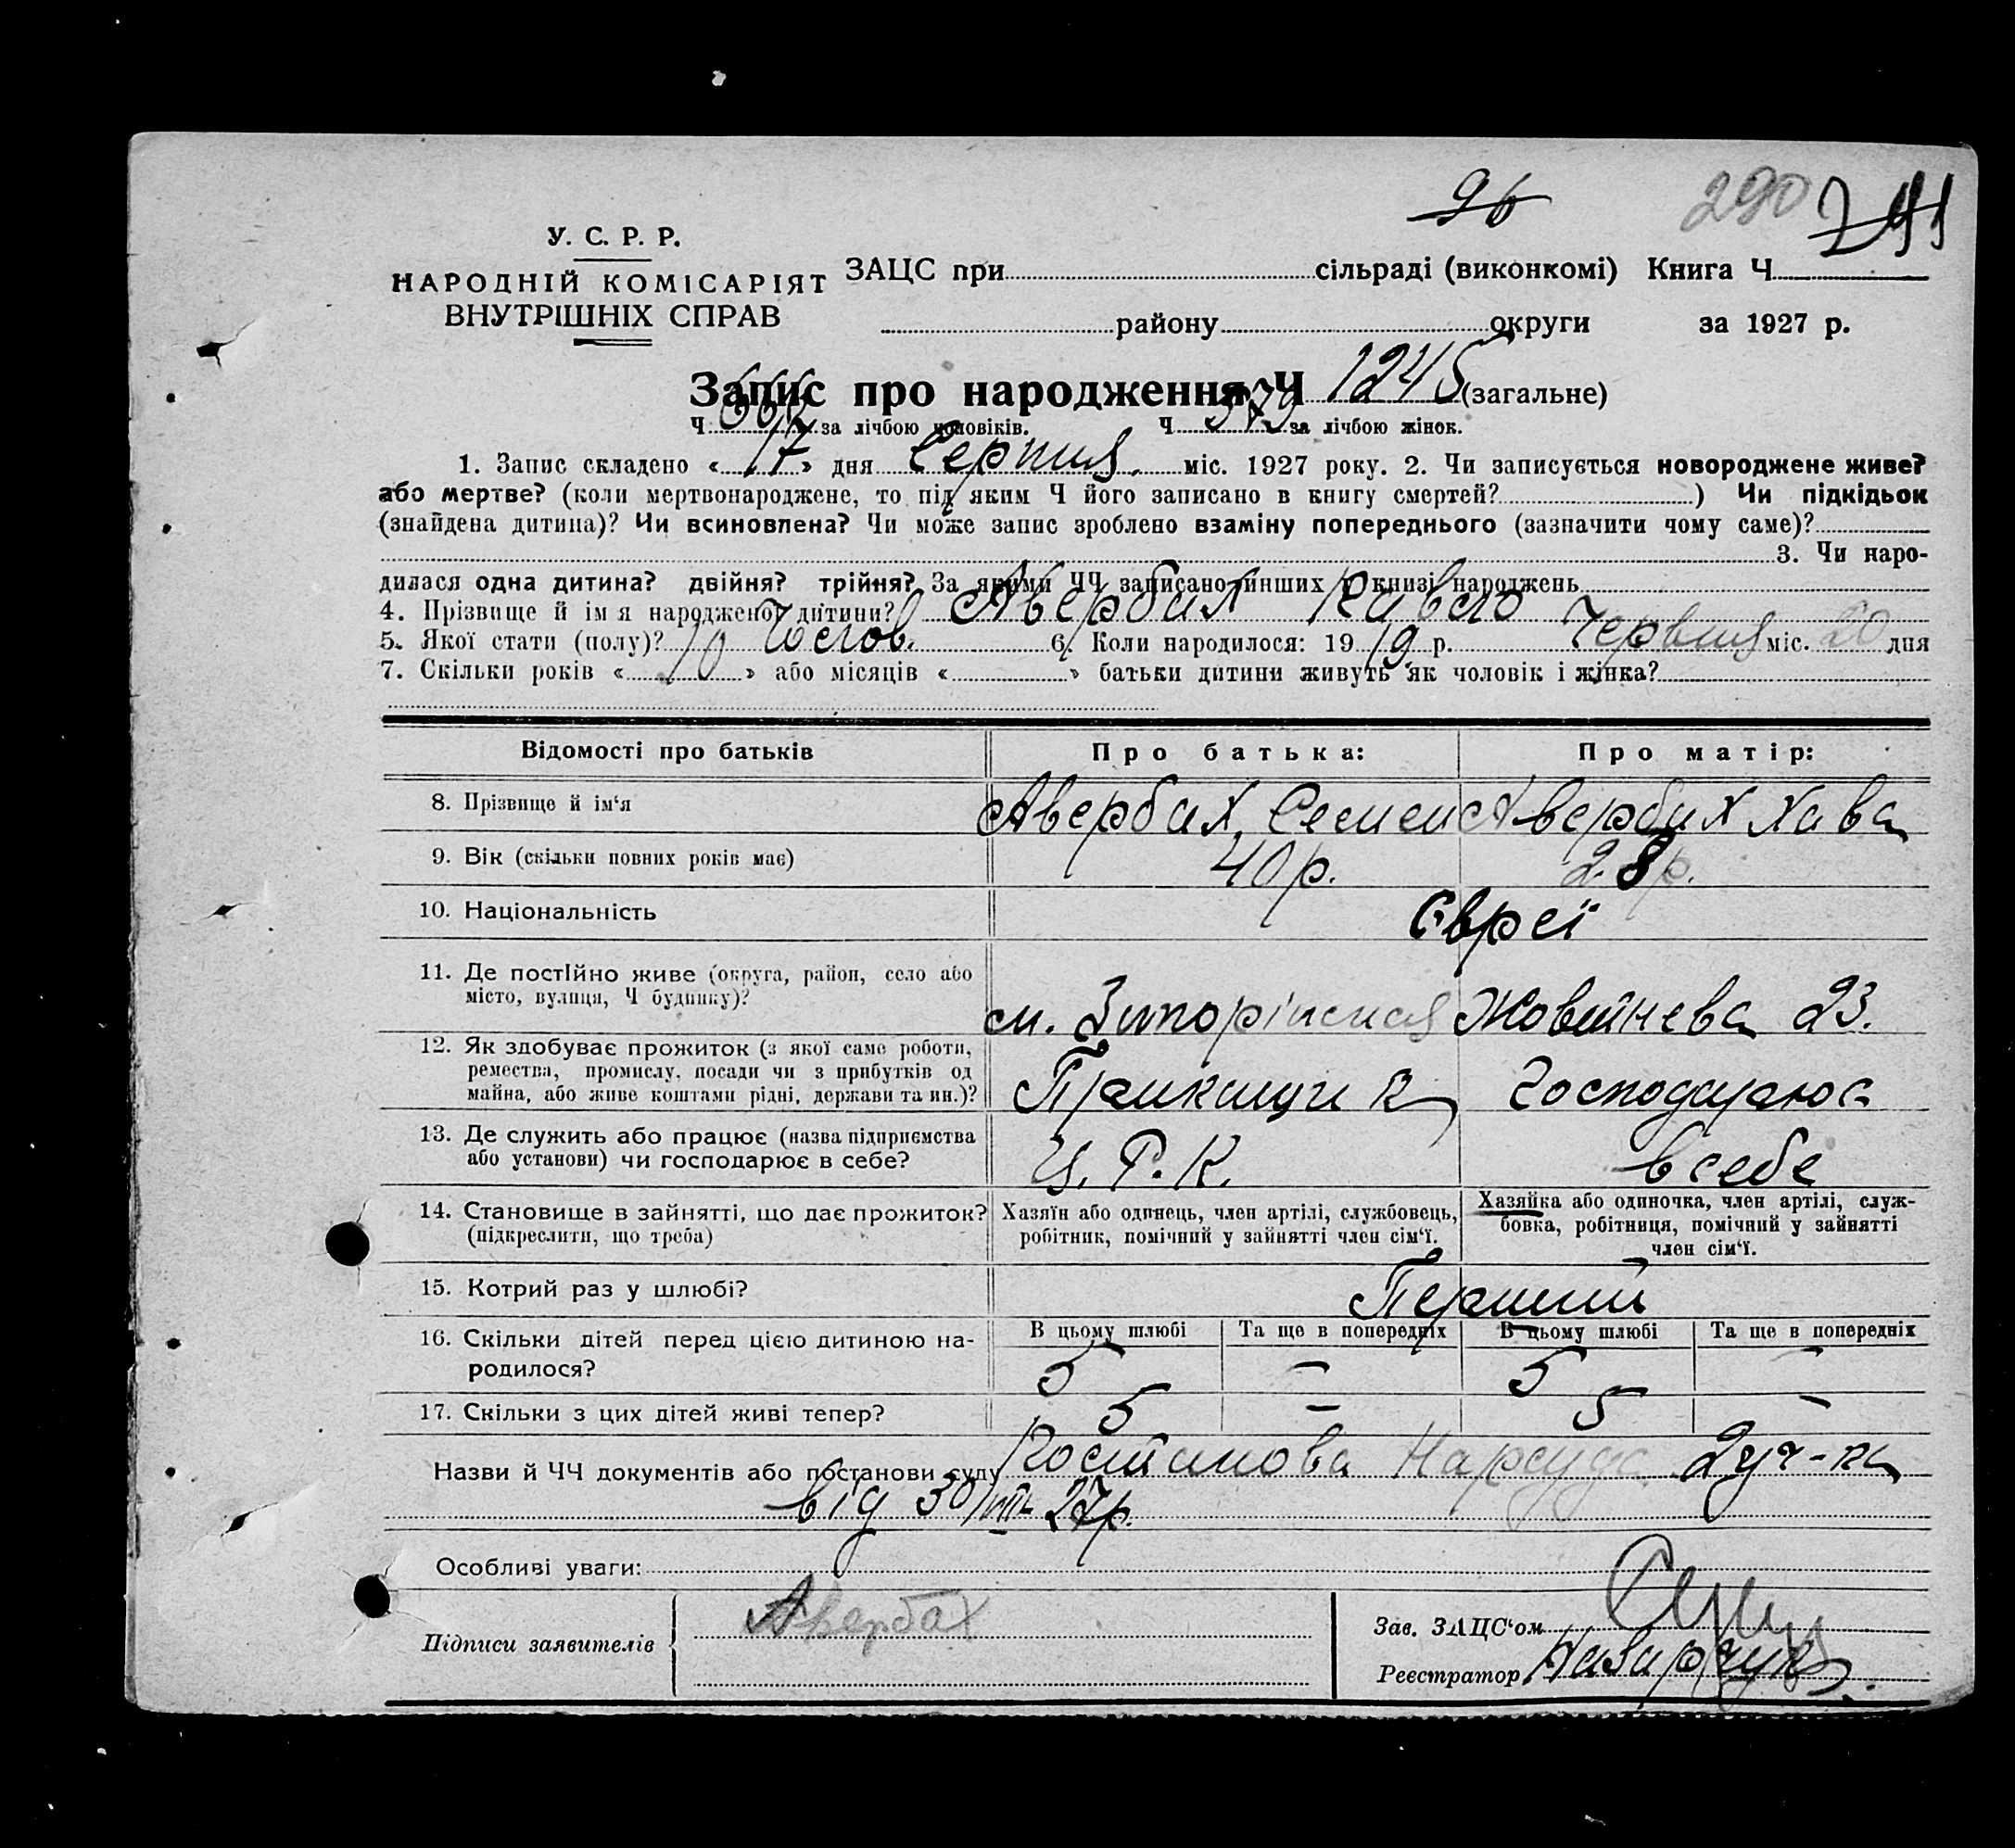 96 290 291
У. С. Р. Р.
НАРОДНІЙ КОМІСАРІЯТ
ВНУТРІШНІХ СПРАВ
ЗАЦС при сільраді (виконкомі) Книга Ч
району округи за 1927 р.
Запис про народження Ч 1245 (загальне)
Ч 666 за лічбою чоловіків. Ч 579 за лічбою жінок.
1. Запис складено « 17 » дня Серпня міс. 1927 року. 2. Чи записується новороджене живе?
або мертве? (коли мертвонароджене, то під яким Ч його записано в книгу смертей? ) Чи підкідьок
(знайдена дитина)? Чи всиновлена? Чи може запис зроблено взаміну попереднього (зазначити чому саме)?
3. Чи наро-
дилася одна дитина? двійня? трійня? За якими ЧЧ записано инших в книзі народжень
4. Прізвище й ім я народженої дитини? Авербах
5. Якої стати (полу)? Чолов. 6. Коли народилося: 19 19 р. Червня міс. 20 дня
7. Скільки років « 10 » або місяців « » батьки дитини живуть як чоловік і жінка?
Відомості про батьків Про батька: Про матір:
8. Прізвище й ім'я Авербах Семен Авербах Хава
9. Вік (скільки повних років має) 40 р. 28 р.
10. Національність Євреї
11. Де постійно живе (округа, район, село або
місто, вулиця, Ч будинку)? м. Жовтнева 23.
12. Як здобуває прожиток (з якої саме роботи,
ремества, промислу, посади чи з прибутків од
майна, або живе коштами рідні, держави та ин.)?
13. Де служить або працює (назва підприємства
або установи) чи господарює в себе? Ц. Р. К. в себе
14. Становище в зайнятті, що дає прожиток?
(підкреслити, що треба)
Хазяїн або одинець, член артілі, службовець,
робітник, помічний у зайнятті член сім'ї.
Хазяйка або одиночка, член артілі, служ-
бовка, робітниця, помічний у зайнятті
член сім'ї.
15. Котрий раз у шлюбі? Перший
16. Скільки дітей перед цією дитиною на-
родилося?
В цьому шлюбі Та ще в попередніх В цьому шлюбі Та ще в попередніх
5 – 5 –
17. Скільки з цих дітей живі тепер? 5 – 5 –
Назви й ЧЧ документів або постанови суду Постанова Нарсуда 2 уч-ка
від 30/VII 27 р.
Особливі уваги:
Підписи заявителів Авербах
Зав. ЗАЦС'ом
Реєстратор